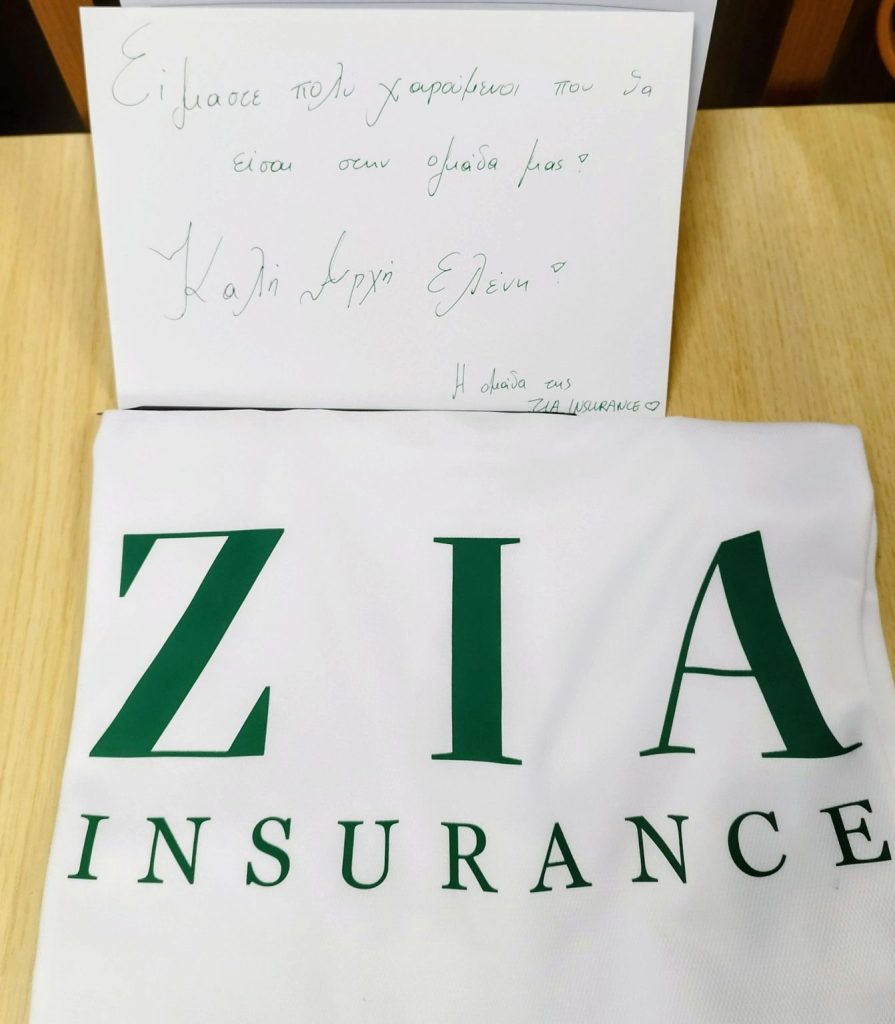 Είμαστε πολύ χαρούμενοι που θα
είσαι στην ομάδα μας!
Καλή Αρχή Ελένη!
Η ομάδα της
ZIA INSURANCE♡
ZIA
INSURANCE